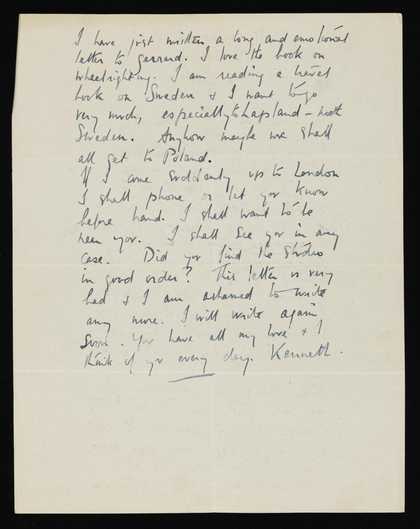 I have just written a long and emotional
letter to Gerrard. I love the book on
wheelrighting. I am reading a travel
book on Sweden & I want to go
very much, especially to Lapsland – north
Sweden. Anyhow maybe we shall
all get to Poland.
If I come suddenly up to London
I shall phone or let you know
before hand. I shall want to be
near you. I shall see you in any
case. Did you find the studio
in good order? This letter is very
bad & I am ashamed to write
any more. I will write again
soon. You have all my love & I
think of you every day. Kenneth.